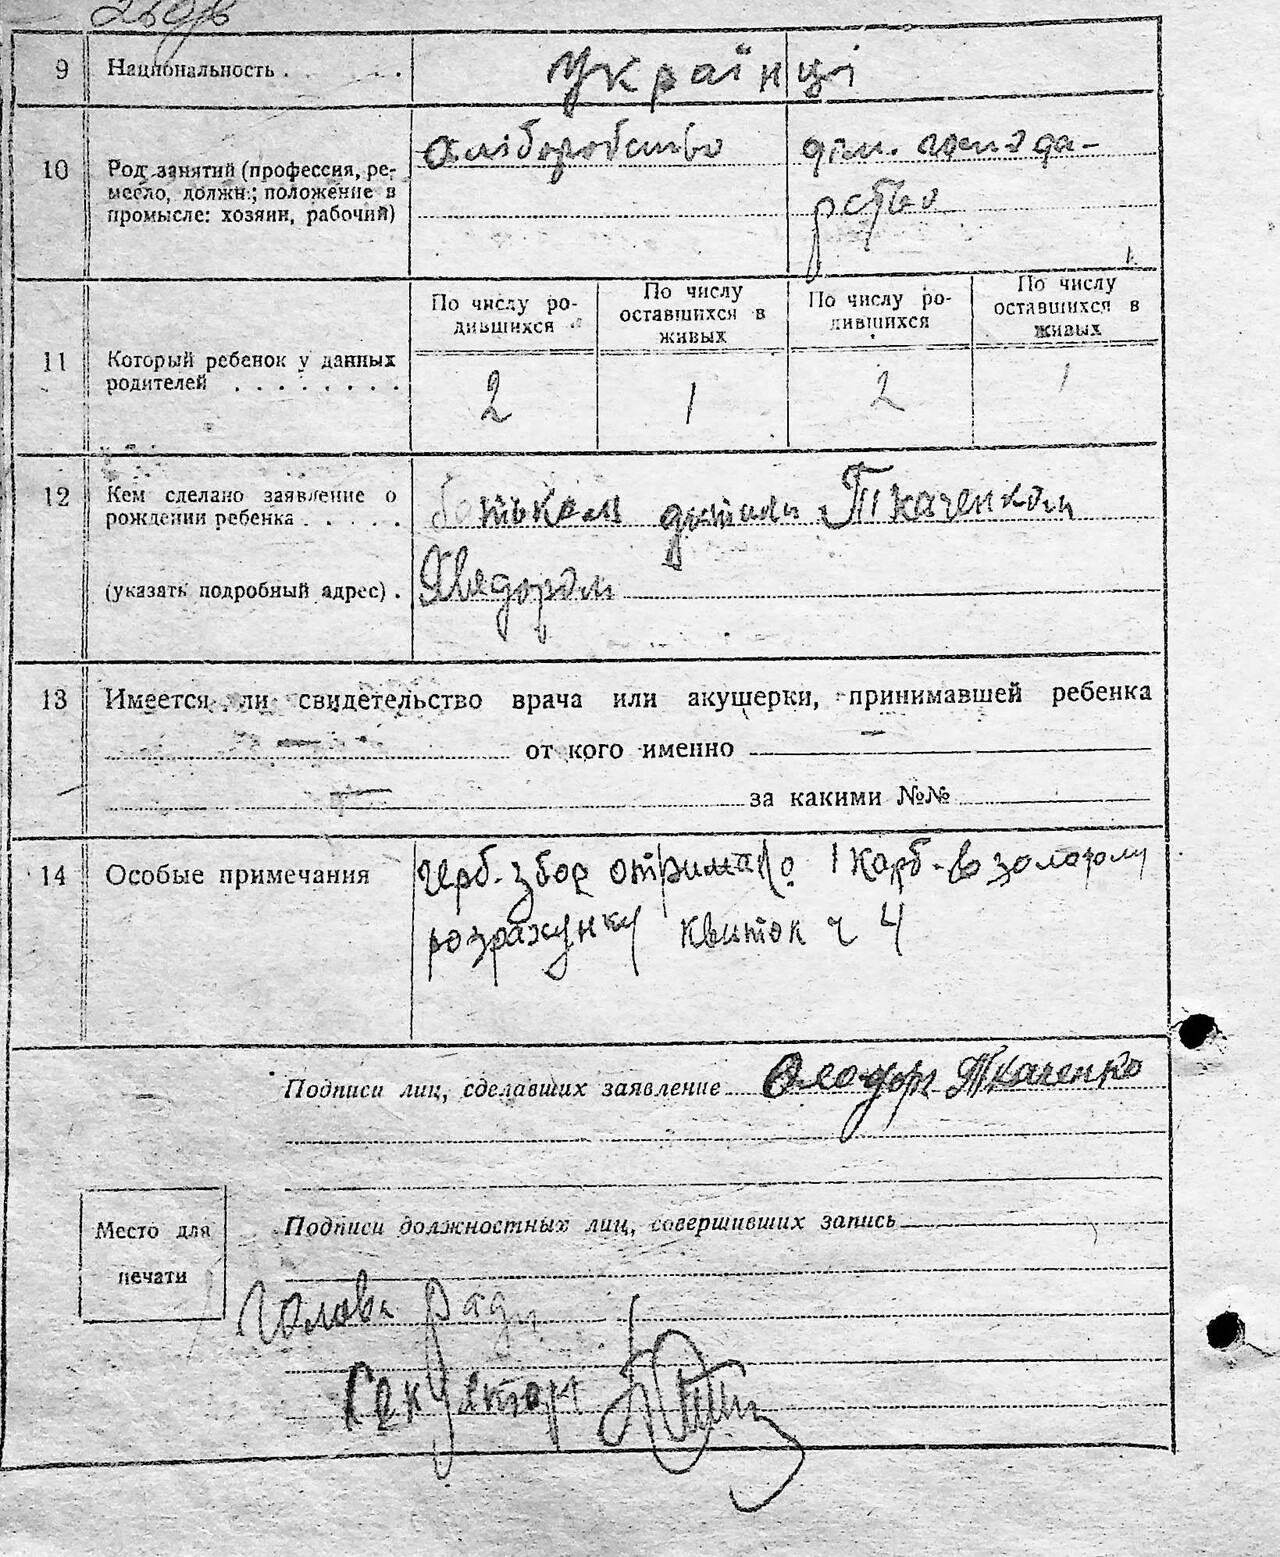 9 Национальность . . . . українці
10 Род занятий (профессия, ре-
месло, должн.; положение в
промысле: хозяин, рабочий)
хліборобство
дом. господа-
рство
По числу ро-
дившихся
По числу
оставшихся в
живых
По числу ро-
дившихся
По числу
оставшихся в
живых
11 Который ребенок у данных
родителей . . . . . . . .
2 1 2 1
12 Кем сделано заявление о
рождении ребенка . . . . .
(указать подробный адрес) .
батьком дитини Ткаченком
Хведором
13 Имеется ли свидетельство врача или акушерки, принимавшей ребенка
— от кого именно —
— за какими №№
14 Особые примечания
герб. збор отримано 1 карб. в золотому
розрахунку квиток ч 4
Подписи лиц, сделавших заявление Ткаченко
Подписи должностных лиц, совершивших запись
Место для
печати
Голова ради
Секретарь